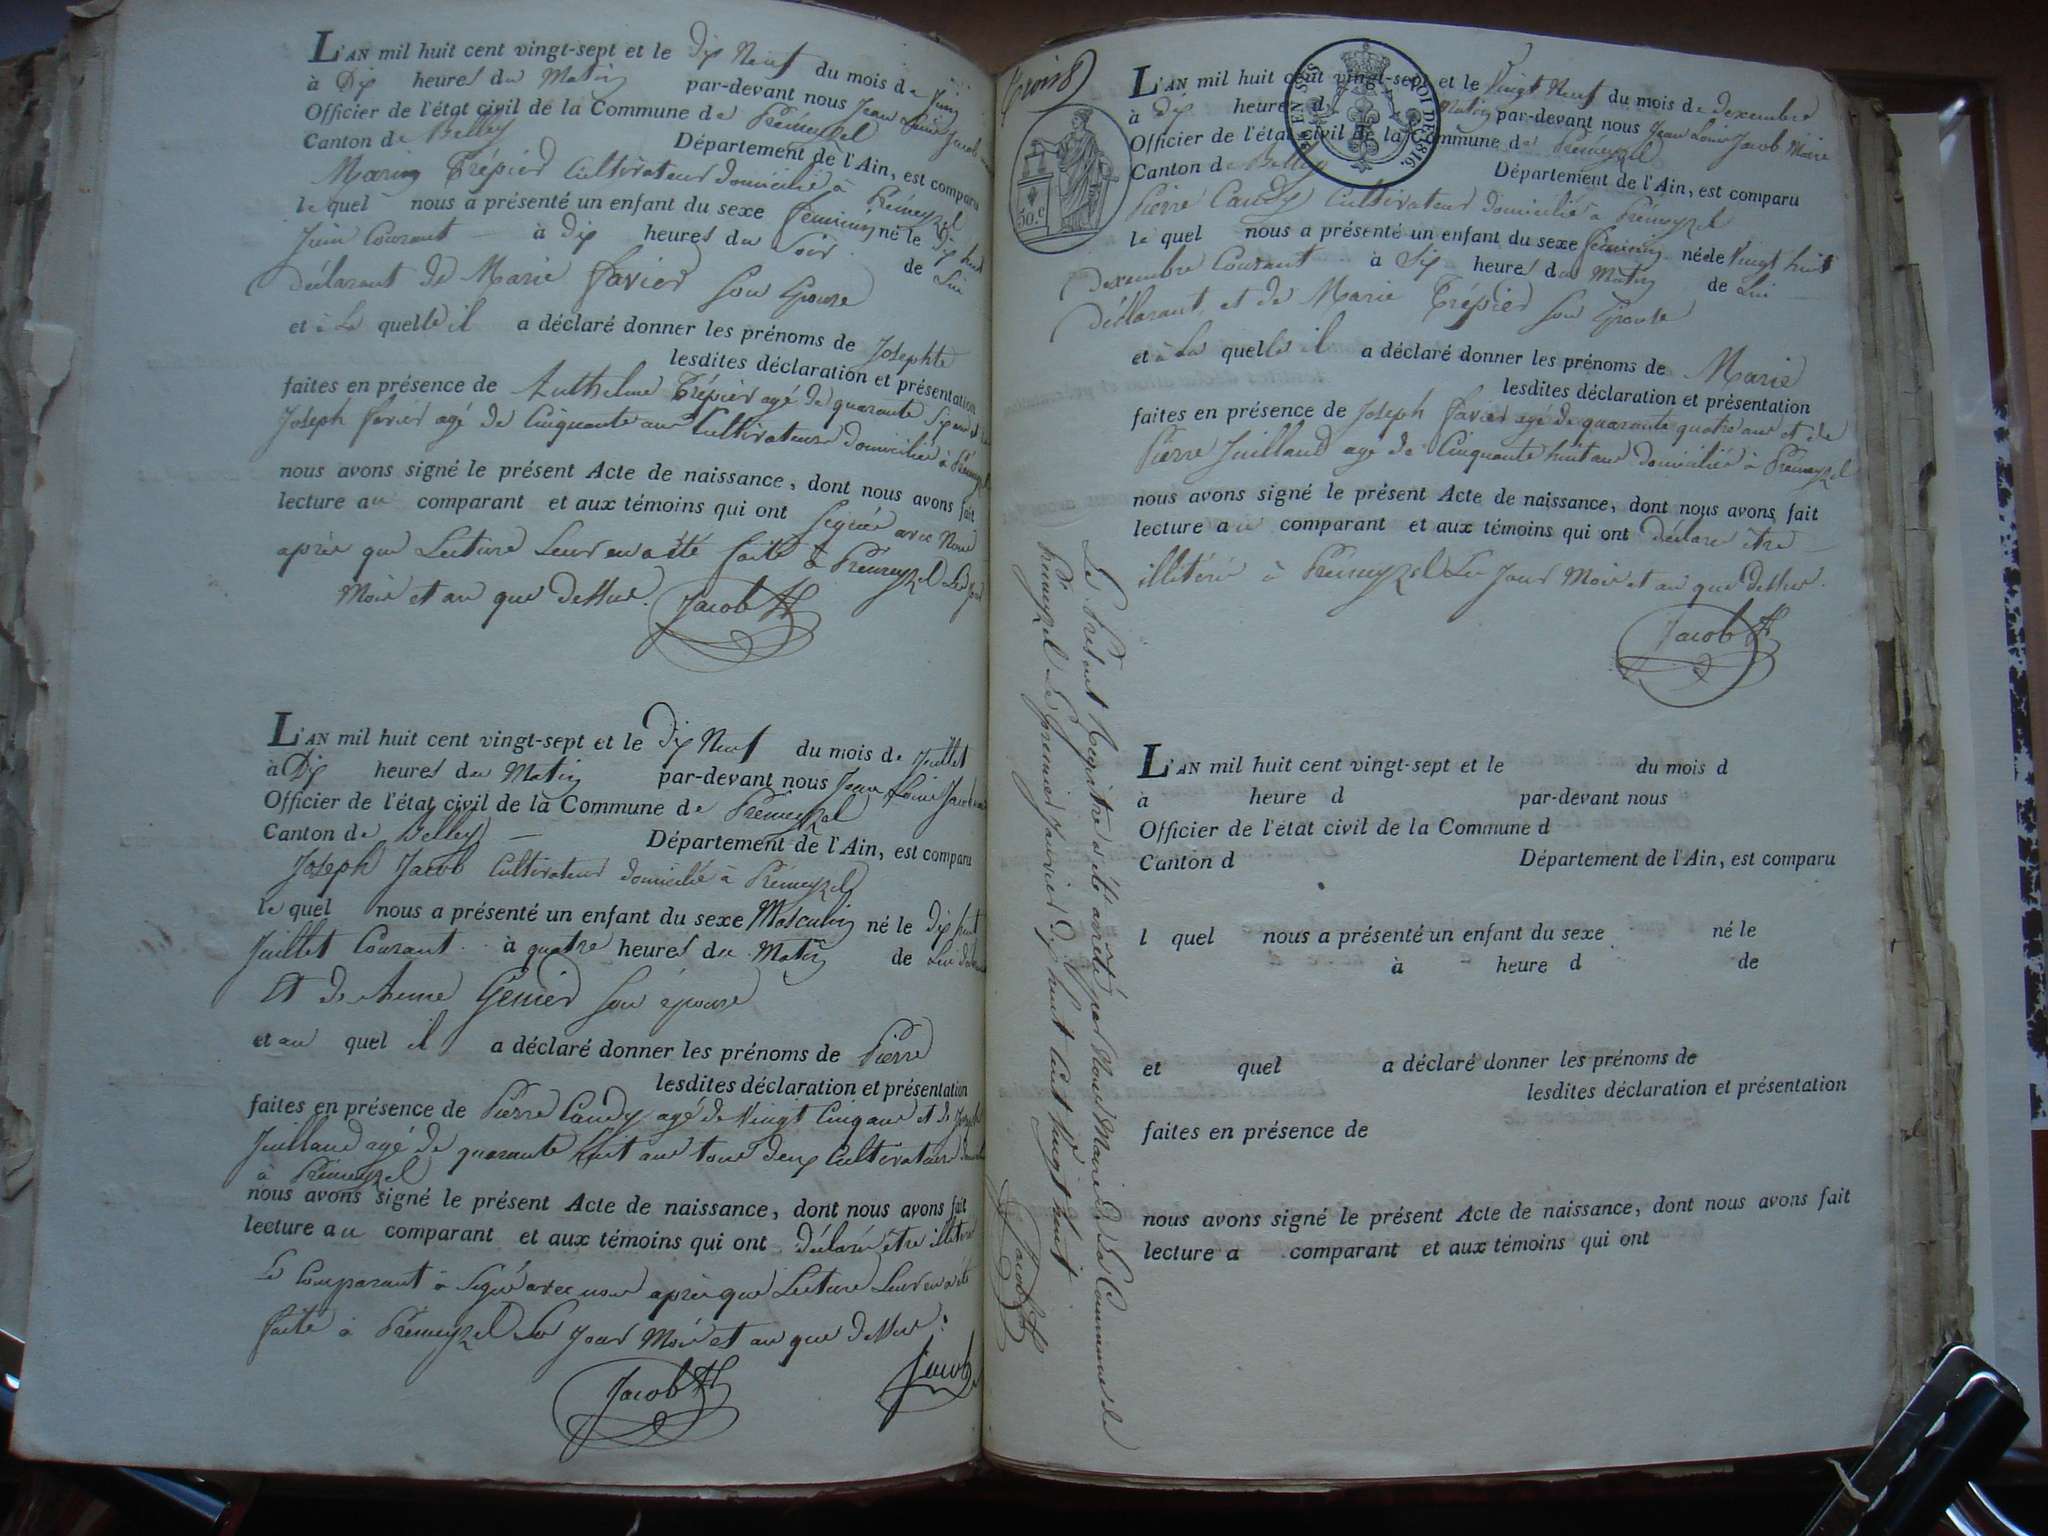 L'AN mil huit cent vingt-sept et le Dix Neuf du mois de Juin
à Dix heures du Matin par-devant nous Jean Louis Jacob
Officier de l'état civil de la Commune de Prémeyzel
Canton de Belley Département de l'Ain, est comparu
Trépier Cultivateur domicilié à Prémeyzel
le quel nous a présenté un enfant du sexe feminin né le Dix huit
Juin Courant à Dix heures du Soir de Lui
déclarant de Marie Favier Son Epouse
et à La quelle il a déclaré donner les prénoms de Josephte
lesdites déclaration et présentation
faites en présence de Anthelme Trépier agé de quarante
Joseph favier agé de Cinquante ans Cultivateurs domiciliés à
nous avons signé le présent Acte de naissance, dont nous avons fait
lecture au comparant et aux témoins qui ont Signée avec Nous
après que Lecture Leur en a été faite à Prémeyzel Les Jour
Mois et an que dessus. Jacob
L'AN mil huit cent vingt-sept et le Dix Neuf du mois de Juillet
à Dix heures du Matin par-devant nous Jean Louis Jacob
Officier de l'état civil de la Commune de Prémeyzel
Canton de Belley Département de l'Ain, est comparu
Joseph Jacob Cultivateur domicilié à Prémeyzel
le quel nous a présenté un enfant du sexe Masculin né le Dix huit
Juillet Courant à quatre heures du Matin de Lui
Et de Anne Genier Son épouse
et au quel il a déclaré donner les prénoms de Pierre
lesdites déclaration et présentation
faites en présence de Pierre Caudy agé de Vingt Cinq ans et de Joseph
Juilland agé de quarante huit ans tous deux Cultivateurs
à Prémeyzel
nous avons signé le présent Acte de naissance, dont nous avons fait
lecture au comparant et aux témoins qui ont déclaré être
Le Comparant à Signé avec nous après que Lecture Leur en a été
faite à Prémeyzel Les Jour Mois et an que dessus.
Jacob Jacob
Trois 8
EN SUS ROI DE 1816.
50.c
L'AN mil huit cent vingt-sept et le Vingt Neuf du mois de dexembre
à dix heures du Matin par-devant nous Jean Louis Jacob Maire
Officier de l'état civil de la Commune de Prémeyzel
Canton de Belley Département de l'Ain, est comparu
Pierre Caudy Cultivateur domicilié à Prémeyzel
le quel nous a présenté un enfant du sexe feminin née le Vingt huit
dexembre Courant à Six heures du Matin de Lui
déclarant et de Marie Trépier Son Epouse
et à La quelle il a déclaré donner les prénoms de Marie
lesdites déclaration et présentation
faites en présence de Joseph favier agé de quarante quatre ans et de
Pierre Juilland agé de Cinquante huit ans domiciliés à Prémeyzel
nous avons signé le présent Acte de naissance, dont nous avons fait
lecture au comparant et aux témoins qui ont déclaré être
illitérés à Prémeyzel Les Jour Mois et an que dessus.
Jacob
Le Présent Registre a été arrêté par Nous Maire de La Commune de
Prémeyzel Le Premier Janvier Dix huit Cent Vingt huit
Jacob
L'AN mil huit cent vingt-sept et le du mois d
à heure d par-devant nous
Officier de l'état civil de la Commune d
Canton d Département de l'Ain, est comparu
l quel nous a présenté un enfant du sexe né le
à heure d de
et quel a déclaré donner les prénoms de
lesdites déclaration et présentation
faites en présence de
nous avons signé le présent Acte de naissance, dont nous avons fait
lecture a comparant et aux témoins qui ont